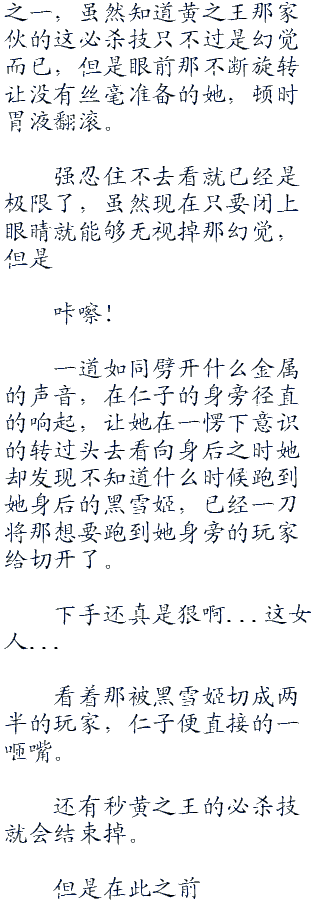 之一，虽然知道黄之王那家
伙的这必杀技只不过是幻觉
而已，但是眼前那不断旋转
让没有丝毫准备的她，顿时
胃液翻滚。
强忍住不去看就已经是
极限了，虽然现在只要闭上
眼睛就能够无视掉那幻觉，
但是
咔嚓！
一道如同劈开什么金属
的声音，在仁子的身旁径直
的响起，让她在一愣下意识
的转过头去看向身后之时她
却发现不知道什么时候跑到
她身后的黑雪姬，已经一刀
将那想要跑到她身旁的玩家
给切开了。
下手还真是狠啊...这女
人...
看着那被黑雪姬切成两
半的玩家，仁子便直接的一
咂嘴。
还有秒黄之王的必杀技
就会结束掉。
但是在此之前